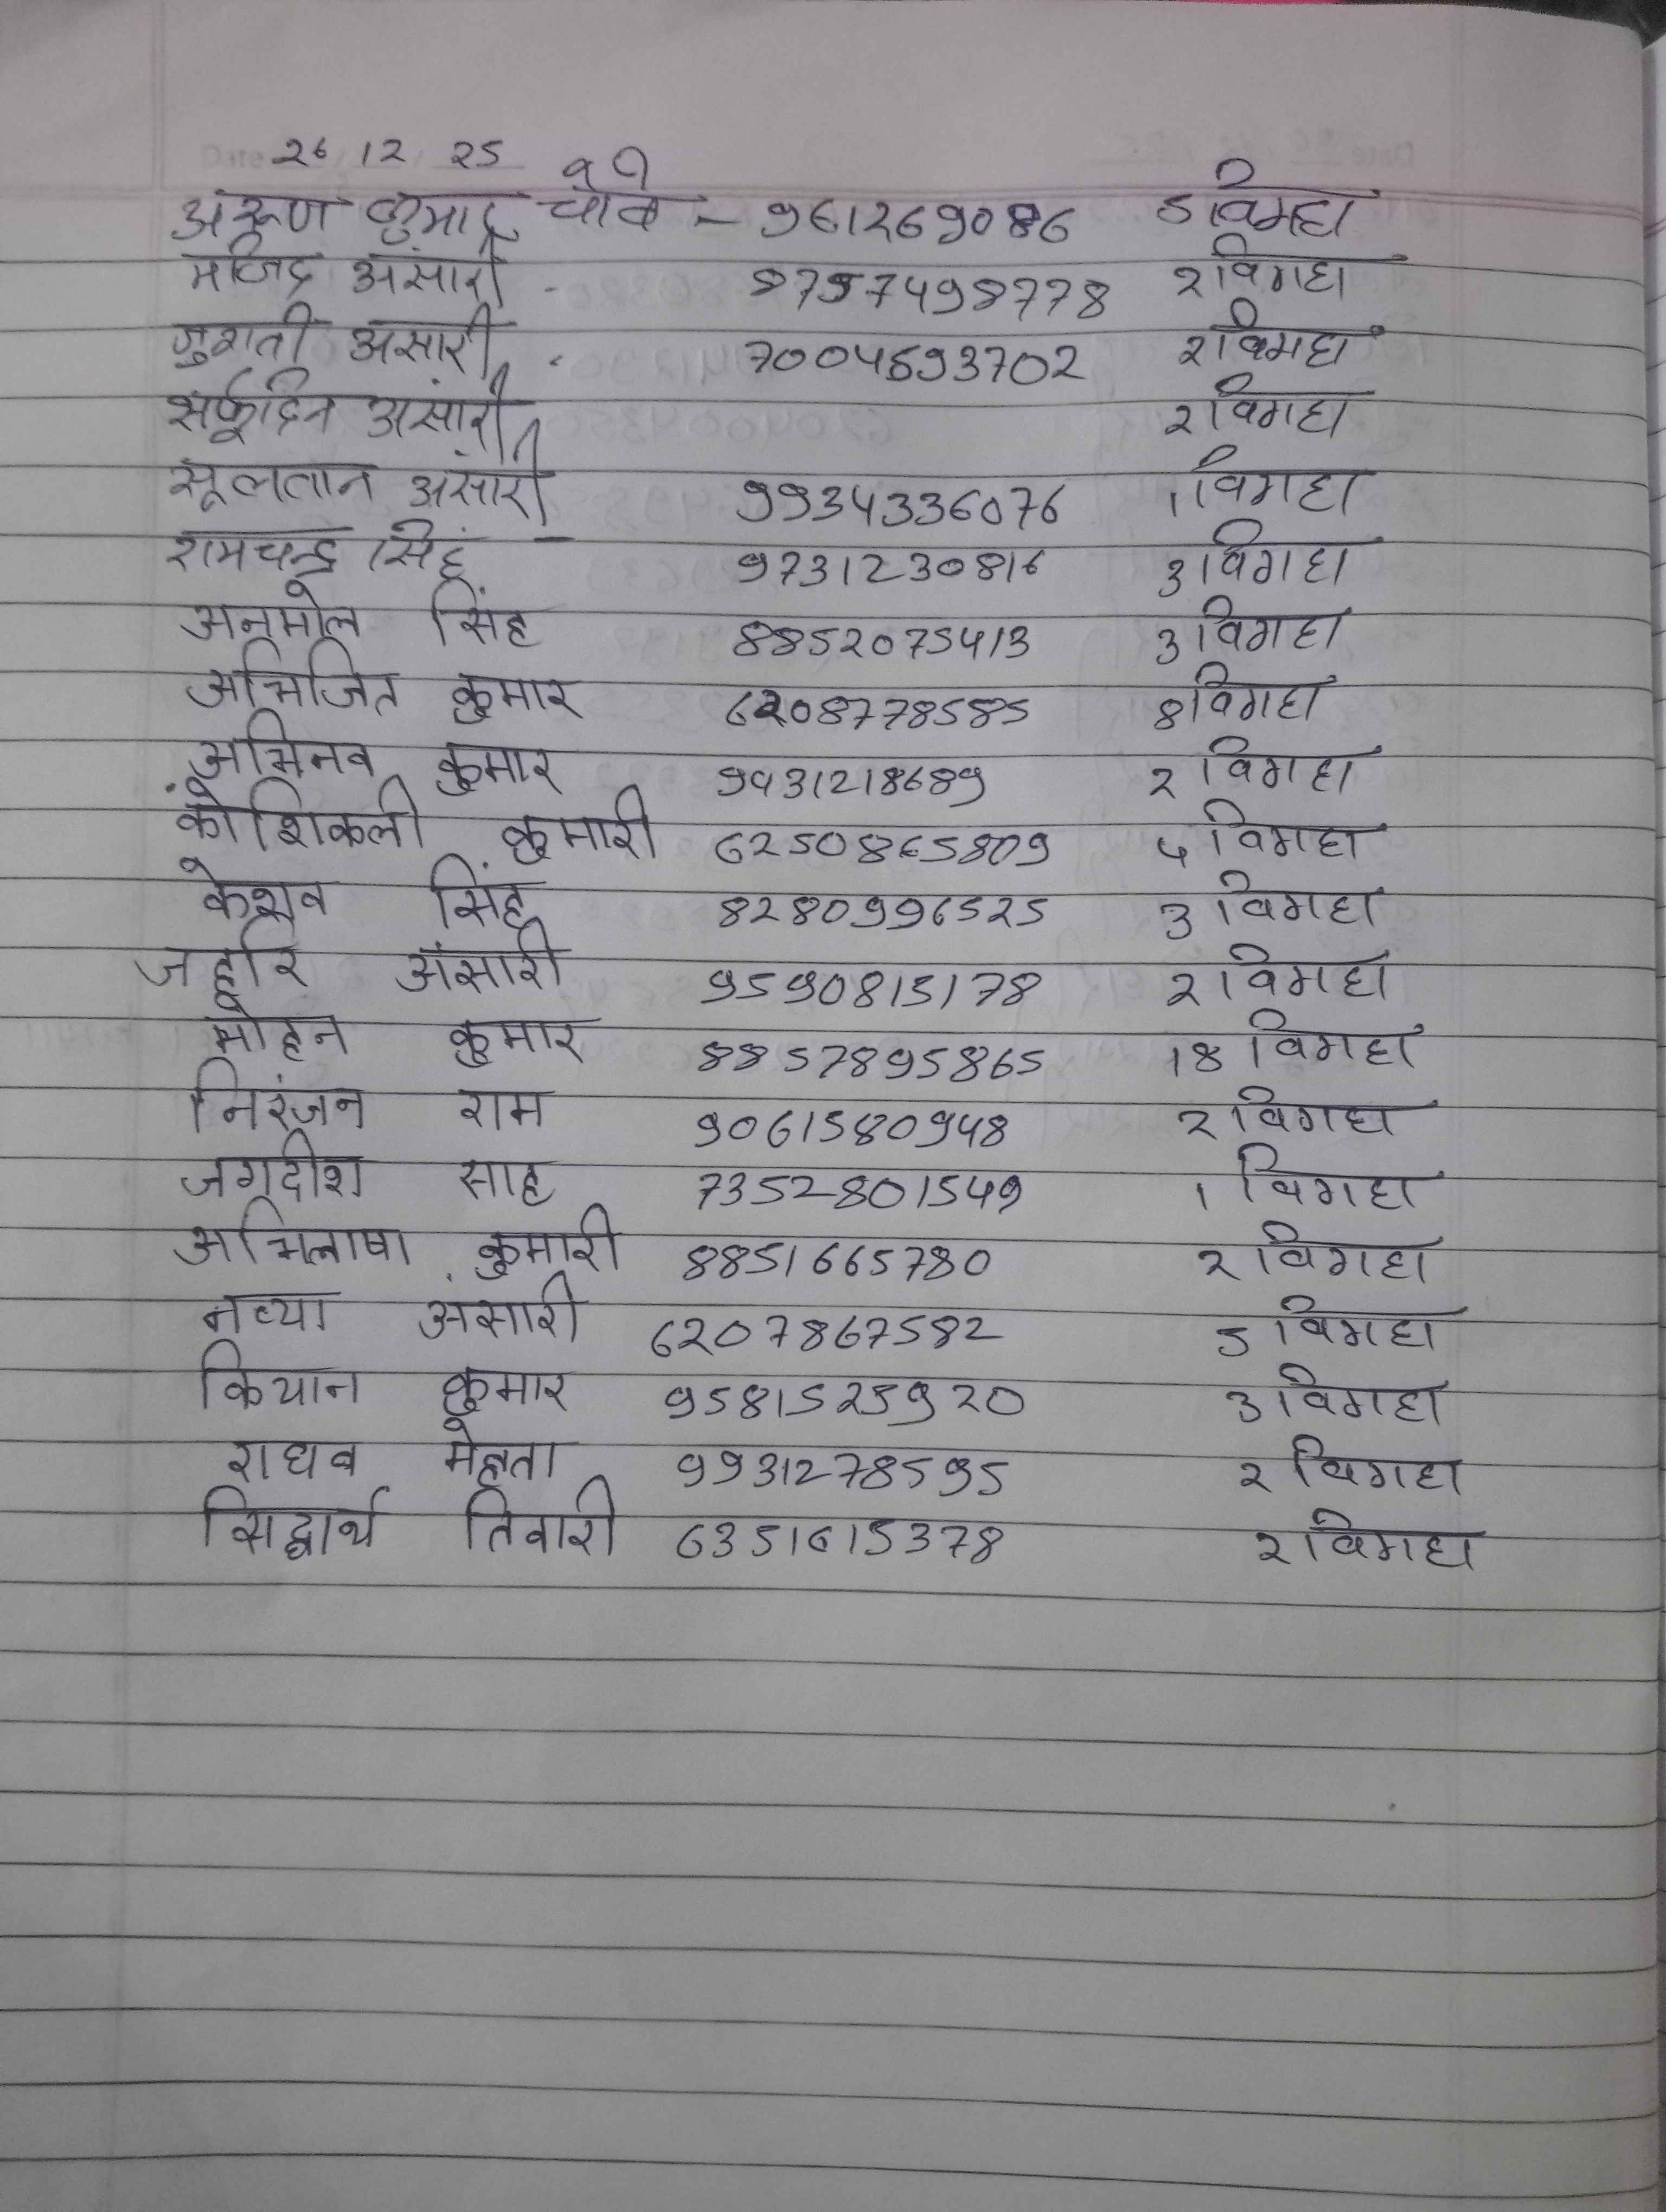 Date 26 12 25
अरूण कुमार चौबे - 961269086 5 विगहा
मजिद अंसारी - 8797498778 2 विगहा
जुराती अंसारी - 7004593702 2 विगहा
सर्फूदिन अंसारी 2 विगहा
सूलतान अंसारी 9934336076 1 विगहा
रामचन्द्र सिंह - 9731230816 3 विगहा
अनमोल सिंह 8852075413 3 विगहा
अभिजित कुमार 6208778585 8 विगहा
अभिनव कुमार 9431218689 2 विगहा
कोशिकली कुमारी 6250865809 5 विगहा
केशव सिंह 8280996525 3 विगहा
जहूरि अंसारी 9590815178 2 विगहा
मोहन कुमार 8857895865 18 विगहा
निरंजन राम 9061580948 2 विगहा
जगदीश साह 7352801549 1 विगहा
अभिलाषा कुमारी 8851665780 2 विगहा
नव्या अंसारी 6207867582 5 विगहा
कियान कुमार 9581525920 3 विगहा
राघव मेहता 9931278595 2 विगहा
सिद्धार्थ तिवारी 6351615378 2 विगहा